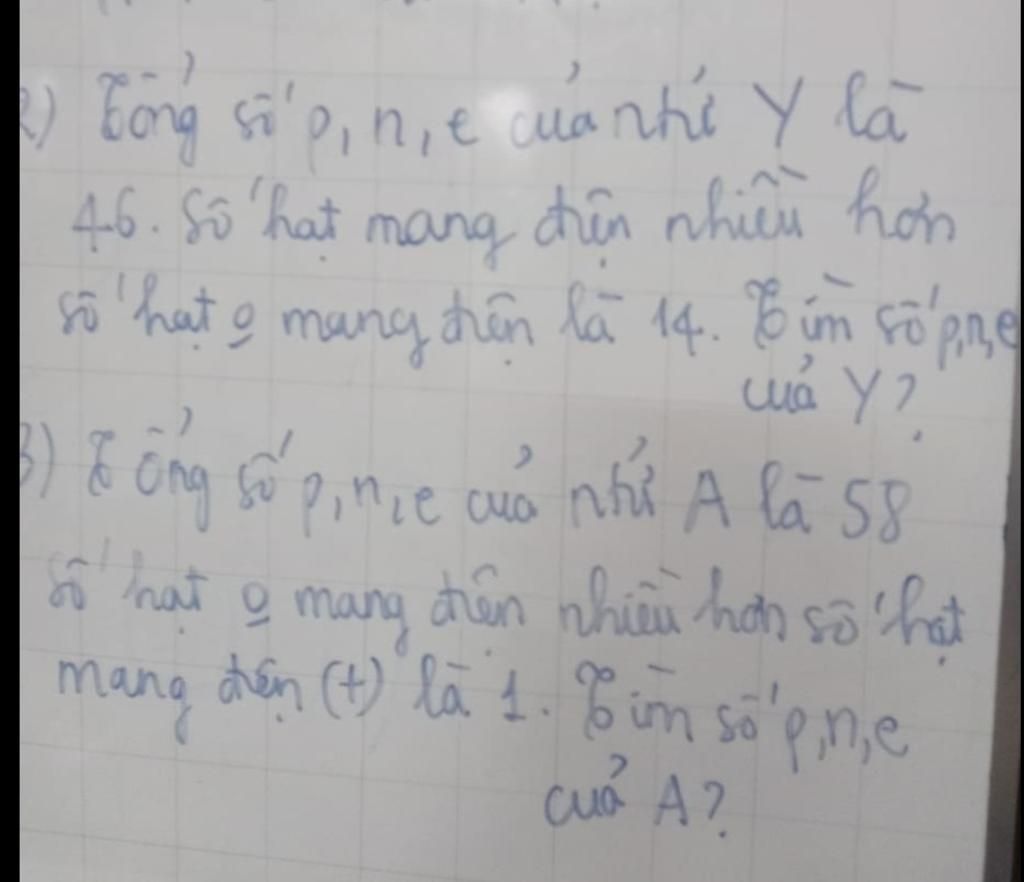 2) Tổng số p, n, e của nhử Y là
46. Số hạt mang điện nhiều hơn
số hạt o mang điện là 14. Tìm số p,n,e
của Y?
3) Tổng số p, n, e của nhử A là 58
số hạt o mang điện nhiều hơn số hạt
mang điện (+) là 1. Tìm số p,n,e
của A?